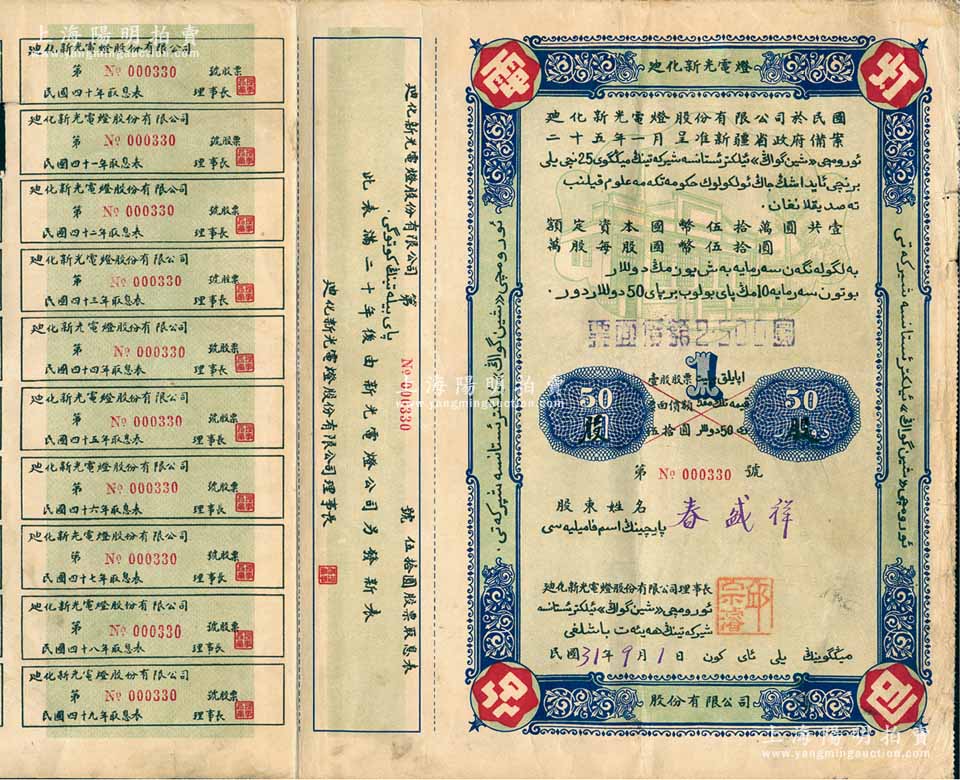 上海陽明拍賣
www.yangmingauction.com
迪化新光電燈股份有限公司
第 № 000330 號股票
民國四十年取息表 理事長
迪化新光電燈股份有限公司
第 № 000330 號股票
民國四十一年取息表 理事長
迪化新光電燈股份有限公司
第 № 000330 號股票
民國四十二年取息表 理事長
迪化新光電燈股份有限公司
第 № 000330 號股票
民國四十三年取息表 理事長
迪化新光電燈股份有限公司
第 № 000330 號股票
民國四十四年取息表 理事長
迪化新光電燈股份有限公司
第 № 000330 號股票
民國四十五年取息表 理事長
迪化新光電燈股份有限公司
第 № 000330 號股票
民國四十六年取息表 理事長
迪化新光電燈股份有限公司
第 № 000330 號股票
民國四十七年取息表 理事長
迪化新光電燈股份有限公司
第 № 000330 號股票
民國四十八年取息表 理事長
迪化新光電燈股份有限公司
第 № 000330 號股票
民國四十九年取息表 理事長
迪化新光電燈股份有限公司 第 № 000330 號 伍拾圓股票取息表
此表滿二十年後由新光電燈公司另發新表
迪化新光電燈股份有限公司理事長
上海陽明拍賣
www.yangmingauction.com
電 迪化新光電燈 灯
迪化新光電燈股份有限公司於民國
二十五年一月呈准新疆省政府備案
ئورومچى «شين گواڭ» ئېلكتر ئستانسه شيركه تينڭ ميللگوى 25 نچى يلى
برنچى ئايدا
تەصديقلانغان.
額定資本國幣伍拾萬圓共壹
萬股每股國幣伍拾圓
به لگولەنگەن سەرمايە بەش يوز مڭ دوللار
بوتون سەرمايە 10 مڭ پاى بولوب بر پاى 50 دوللاردور.
50 1 50
股 股
壹股股票
票面價額
伍拾圓 50 دوللار
第 № 000330 號
股東姓名 春盛祥
پايچينڭ اسم فاميليه سى
迪化新光電燈股份有限公司理事長
ئورومچى «شين گواڭ» ئېلكتر ئستانسه
شيركه تينڭ هەيئەت باشلغى
邱宗濬
民國31年9月1日
ميڭگونڭ يلى ئاى كون
股份有限公司
上海陽明拍賣
www.yangmingauction.com